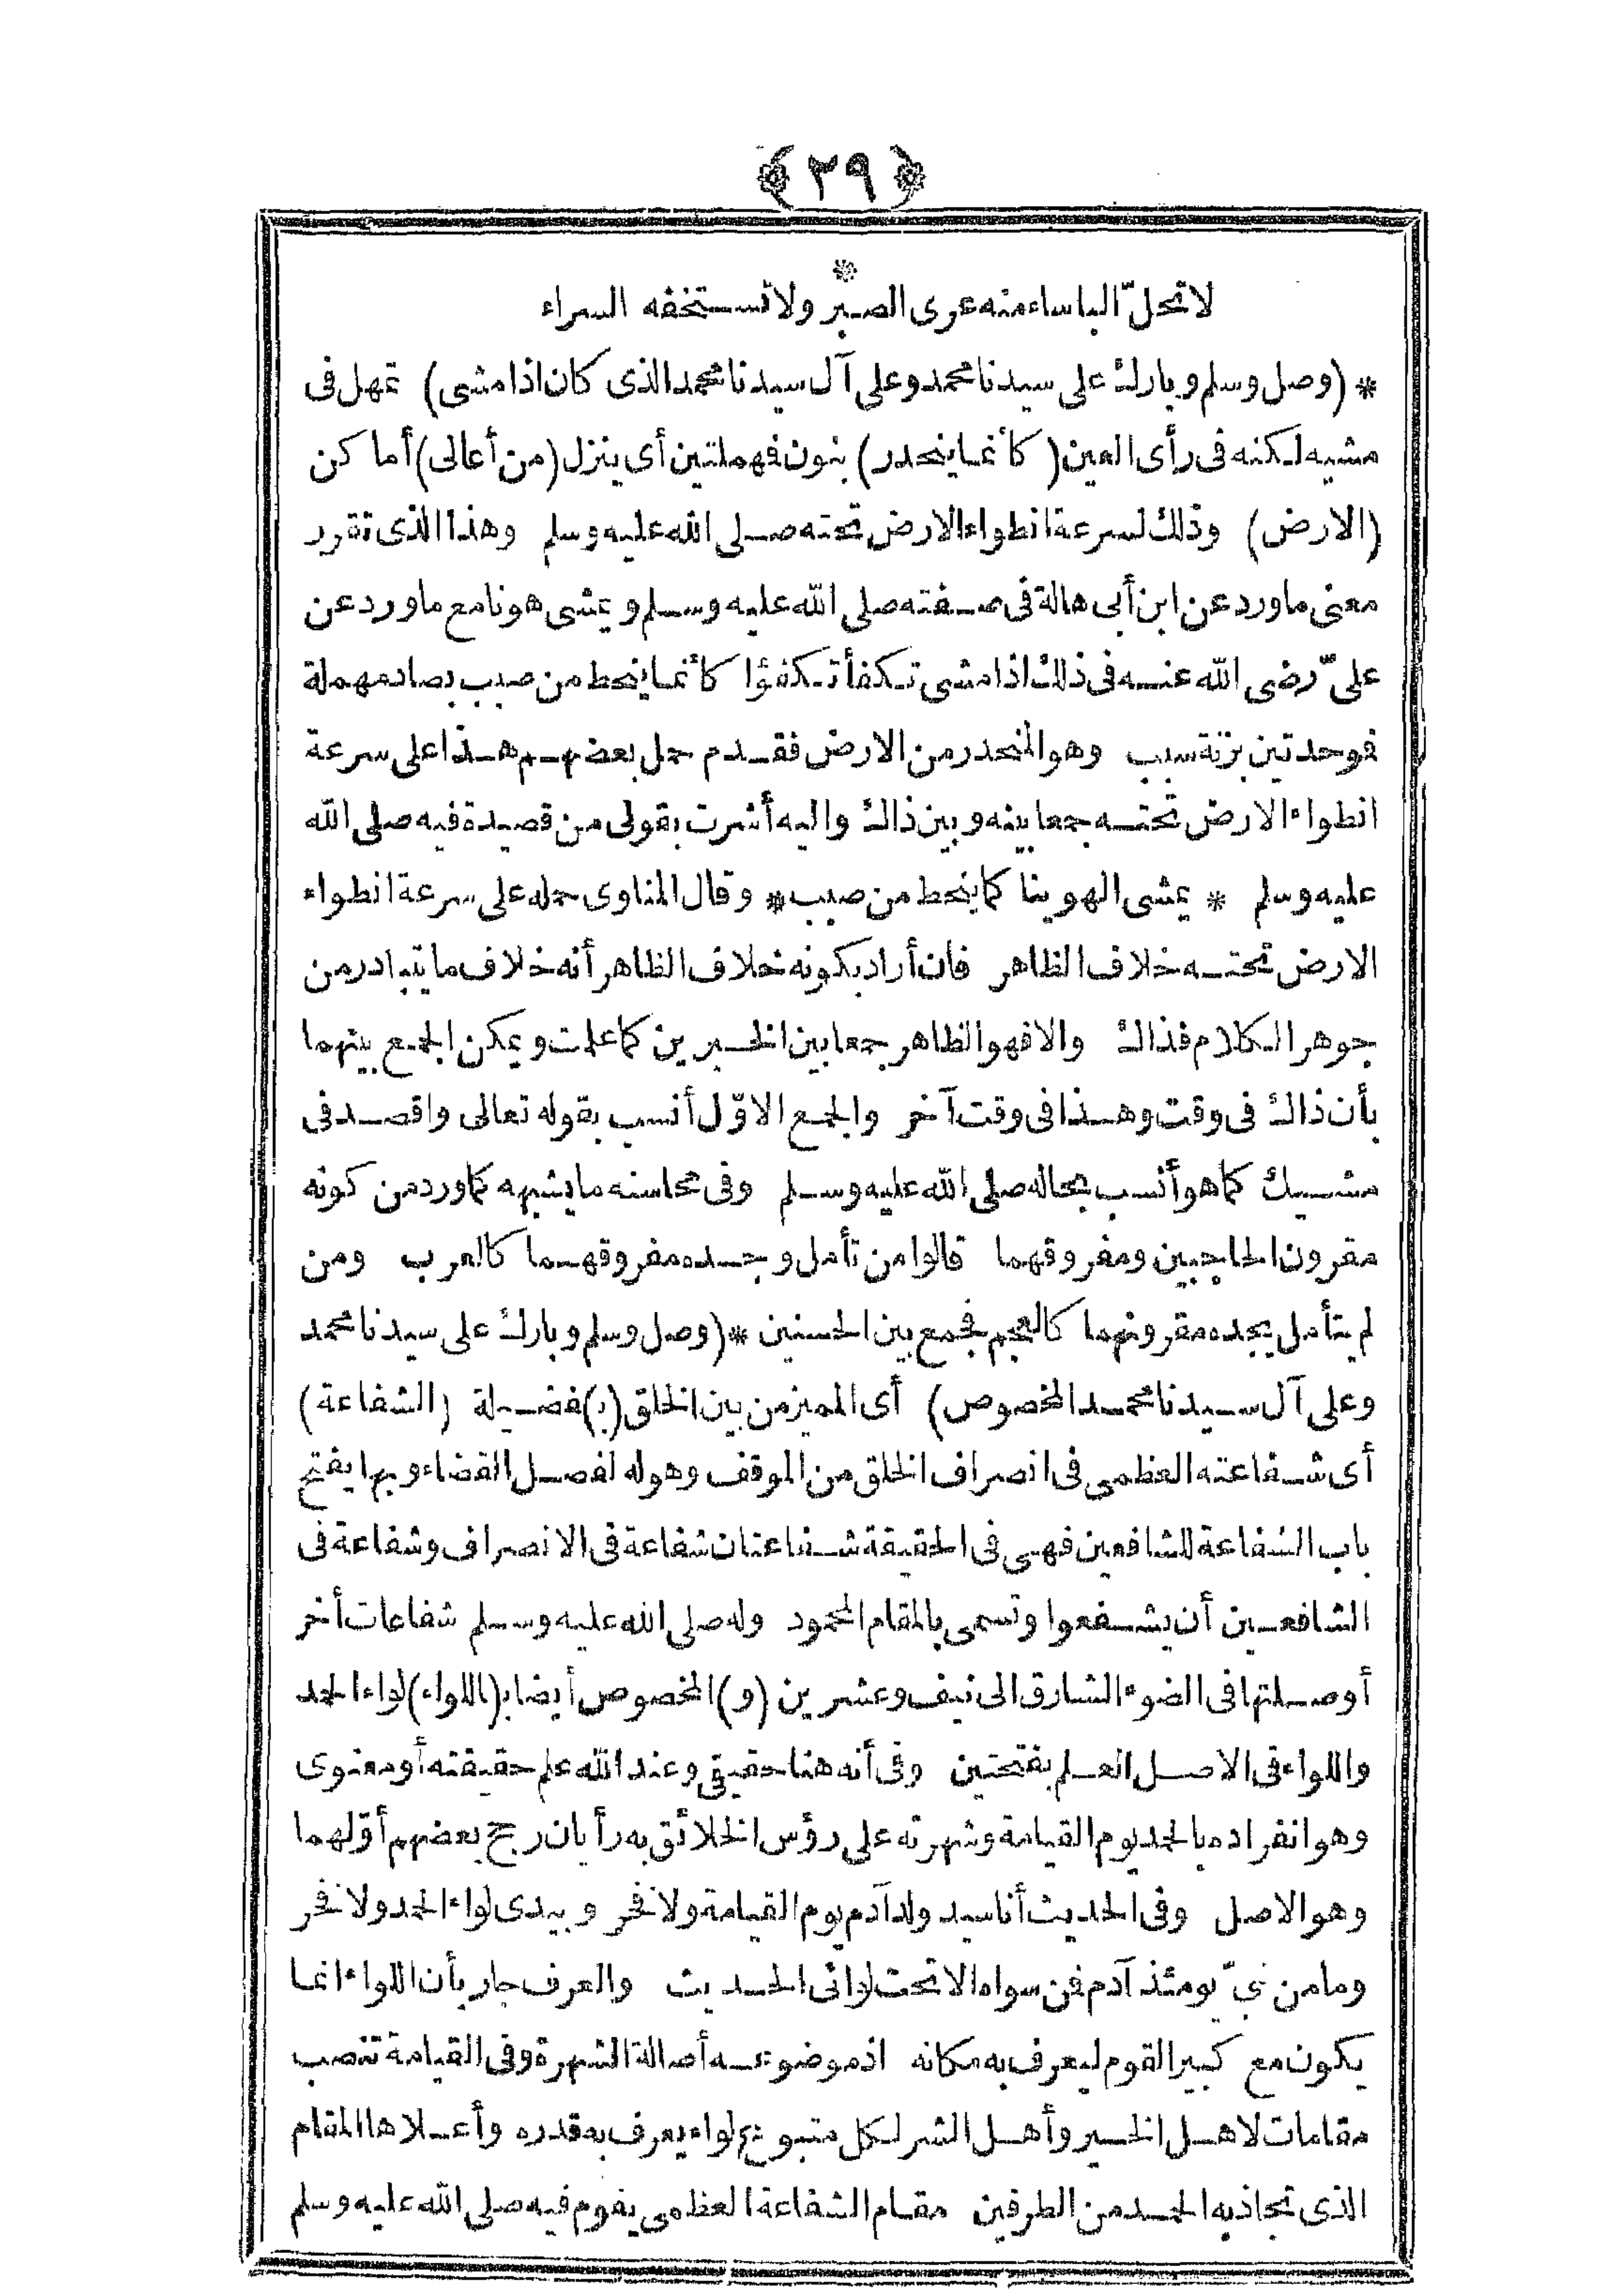 ﴿٣٩﴾
لا تحلّ الباساء منه عرى الصبر ولا تستخفه السراء
* (وصل وسلم وبارك على سيدنا محمد وعلى آل سيدنا محمد الذى كان اذا مشى) تمهل فى
مشيه لكنه فى رأى العين (كأنما ينحدر) بنون فهملتين أى ينزل (من أعالى) أماكن
(الارض) وذلك لسرعة انطواء الارض تحته صلى الله عليه وسلم وهذا الذى تقرر
معنى ما ورد عن ابن أبى هالة فى صفته صلى الله عليه وسلم ويمشى هونا مع ما ورد عن
علىّ رضى الله عنه فى ذلك اذا مشى تكفأ تكفؤا كأنما ينحط من صبب بصاد مهملة
فوحدتين بزنة سبب وهو المنحدر من الارض فقدم حمل بعضهم هذا على سرعة
انطواء الارض تحته جمعا بينه وبين ذاك واليه أشرت بقولى من قصيدة فيه صلى الله
عليه وسلم * يمشى الهوينا كما ينحط من صبب * وقال المناوى حمله على سرعة انطواء
الارض تحته خلاف الظاهر فان أراد بكونه خلاف الظاهر أنه خلاف ما يتبادر من
جوهر الكلام فذاك والا فهو الظاهر جمعا بين الخبرين كما علمت ويمكن الجمع بينهما
بأن ذاك فى وقت وهذا فى وقت آخر والجمع الاوّل أنسب بقوله تعالى واقصد فى
مشيك كما هو أنسب بحاله صلى الله عليه وسلم وفى محاسنه ما يشبهه كما ورد من كونه
مقرون الحاجبين ومفروقهما قالوا من تأمل وجده مفروقهما كالعرب ومن
لم يتأمل يجده مقرونهما كالعجم فجمع بين الحسنين * (وصل وسلم وبارك على سيدنا محمد
وعلى آل سيدنا محمد المخصوص) أى المميز من بين الخلق (ب) فضيلة (الشفاعة)
أى شفاعته العظمى فى انصراف الخلق من الموقف وهوله لفصل القضاء وبها يفتح
باب الشفاعة للشافعين فهى فى الحقيقة شفاعتان شفاعة فى الانصراف وشفاعة فى
الشافعين أن يشفعوا وتسمى بالمقام المحمود وله صلى الله عليه وسلم شفاعات أخر
أوصلتها فى الضوء الشارق الى نيف وعشرين (و) المخصوص أيضا ب(اللواء) لواء الحمد
واللواء فى الاصل العلم بفتحتين وفى أنه هنا حقيقى وعند الله علم حقيقته أو معنوى
وهو انفراده بالحمد يوم القيامة وشهرته على رؤس الخلائق به رأيان رجح بعضهم أوّلهما
وهو الاصل وفى الحديث أنا سيد ولد آدم يوم القيامة ولا فخر وبيدى لواء الحمد ولا فخر
وما من نبىّ يومئذ آدم فمن سواه الا تحت لوائى الحديث والعرف جار بأن اللواء انما
يكون مع كبير القوم ليعرف به مكانه اذ موضوعه أصالة الشهرة وفى القيامة تنصب
مقامات لاهل الخير وأهل الشر لكل متبوع لواء يعرف به قدره وأعلاها المقام
الذى تجاذبه الحمد من الطرفين مقام الشفاعة العظمى يقوم فيه صلى الله عليه وسلم